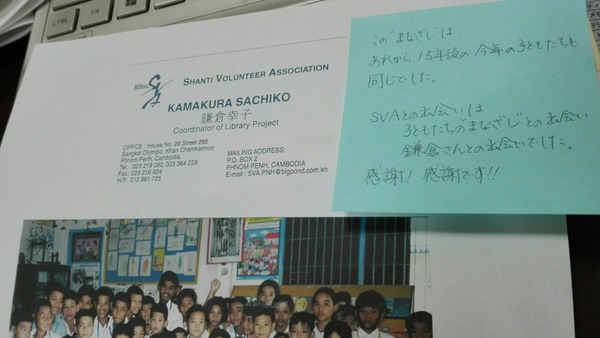 SHANTI VOLUNTEER ASSOCIATION
KAMAKURA SACHIKO
鎌倉幸子
Coordinator of Library Project
OFFICE : House No. 28 Street 288
Sangkat Olympic, Khan Chamkarmon
Phnom Penh, Cambodia.
Tel: 023 218 080, 023 364 229
Fax: 023 216 924
H/P: 012 881 725
MAILING ADDRESS:
P.O. BOX 2
PHNOM PENH, CAMBODIA
E-mail : SVA.PNH@bigpond.com.kh
この"まなざし"は
あれから15年後の今年の子どもたちも
同じでした。
SVAとの出会いは
子どもたちの"まなざし"との出会い
鎌倉さんとの出会いでした。
感謝! 感謝です!!